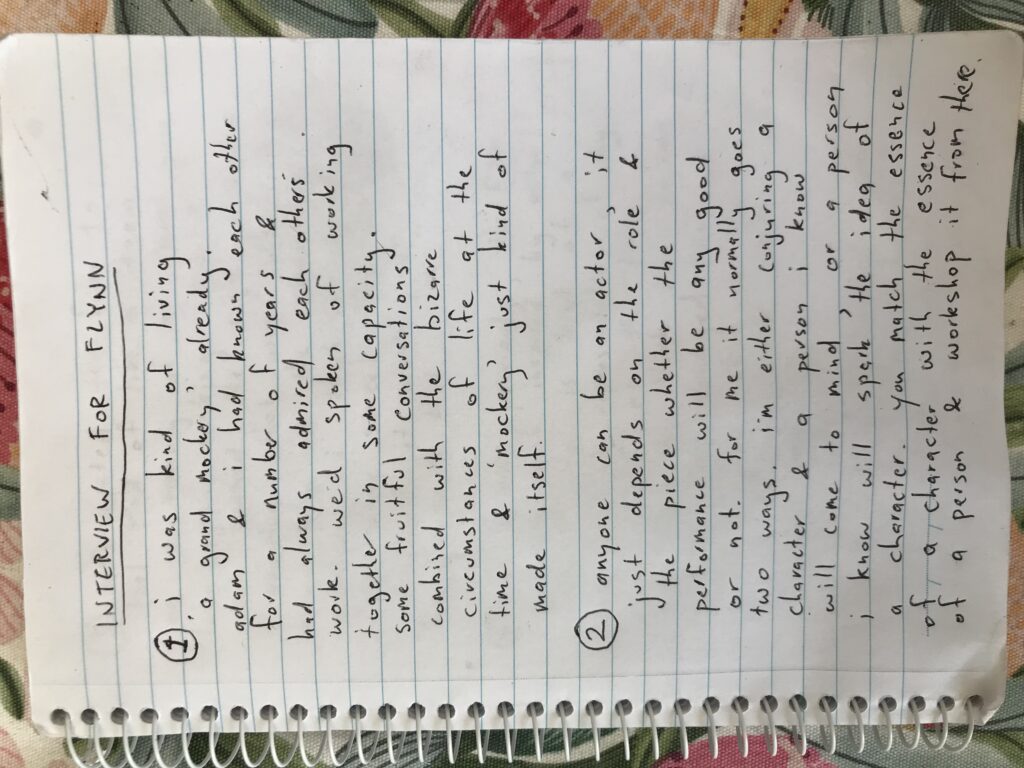 INTERVIEW FOR FLYNN
① i was kind of living
'a grand mockery' already.
adam & i had known each other
for a number of years &
had always admired each others
work. wed spoken of working
together in some capacity.
some fruitful conversations
combied with the bizarre
circumstances of life at the
time & 'mockery' just kind of
made itself.
② anyone can be an 'actor' it
just depends on the role &
the piece whether the
performance will be any good
or not. for me it normally goes
two ways. im either conjuring a
character & a person i know
will come to mind or a person
i know will 'spark' the idea of
a character. you match the essence
of a character with the essence
of a person & workshop it from there.